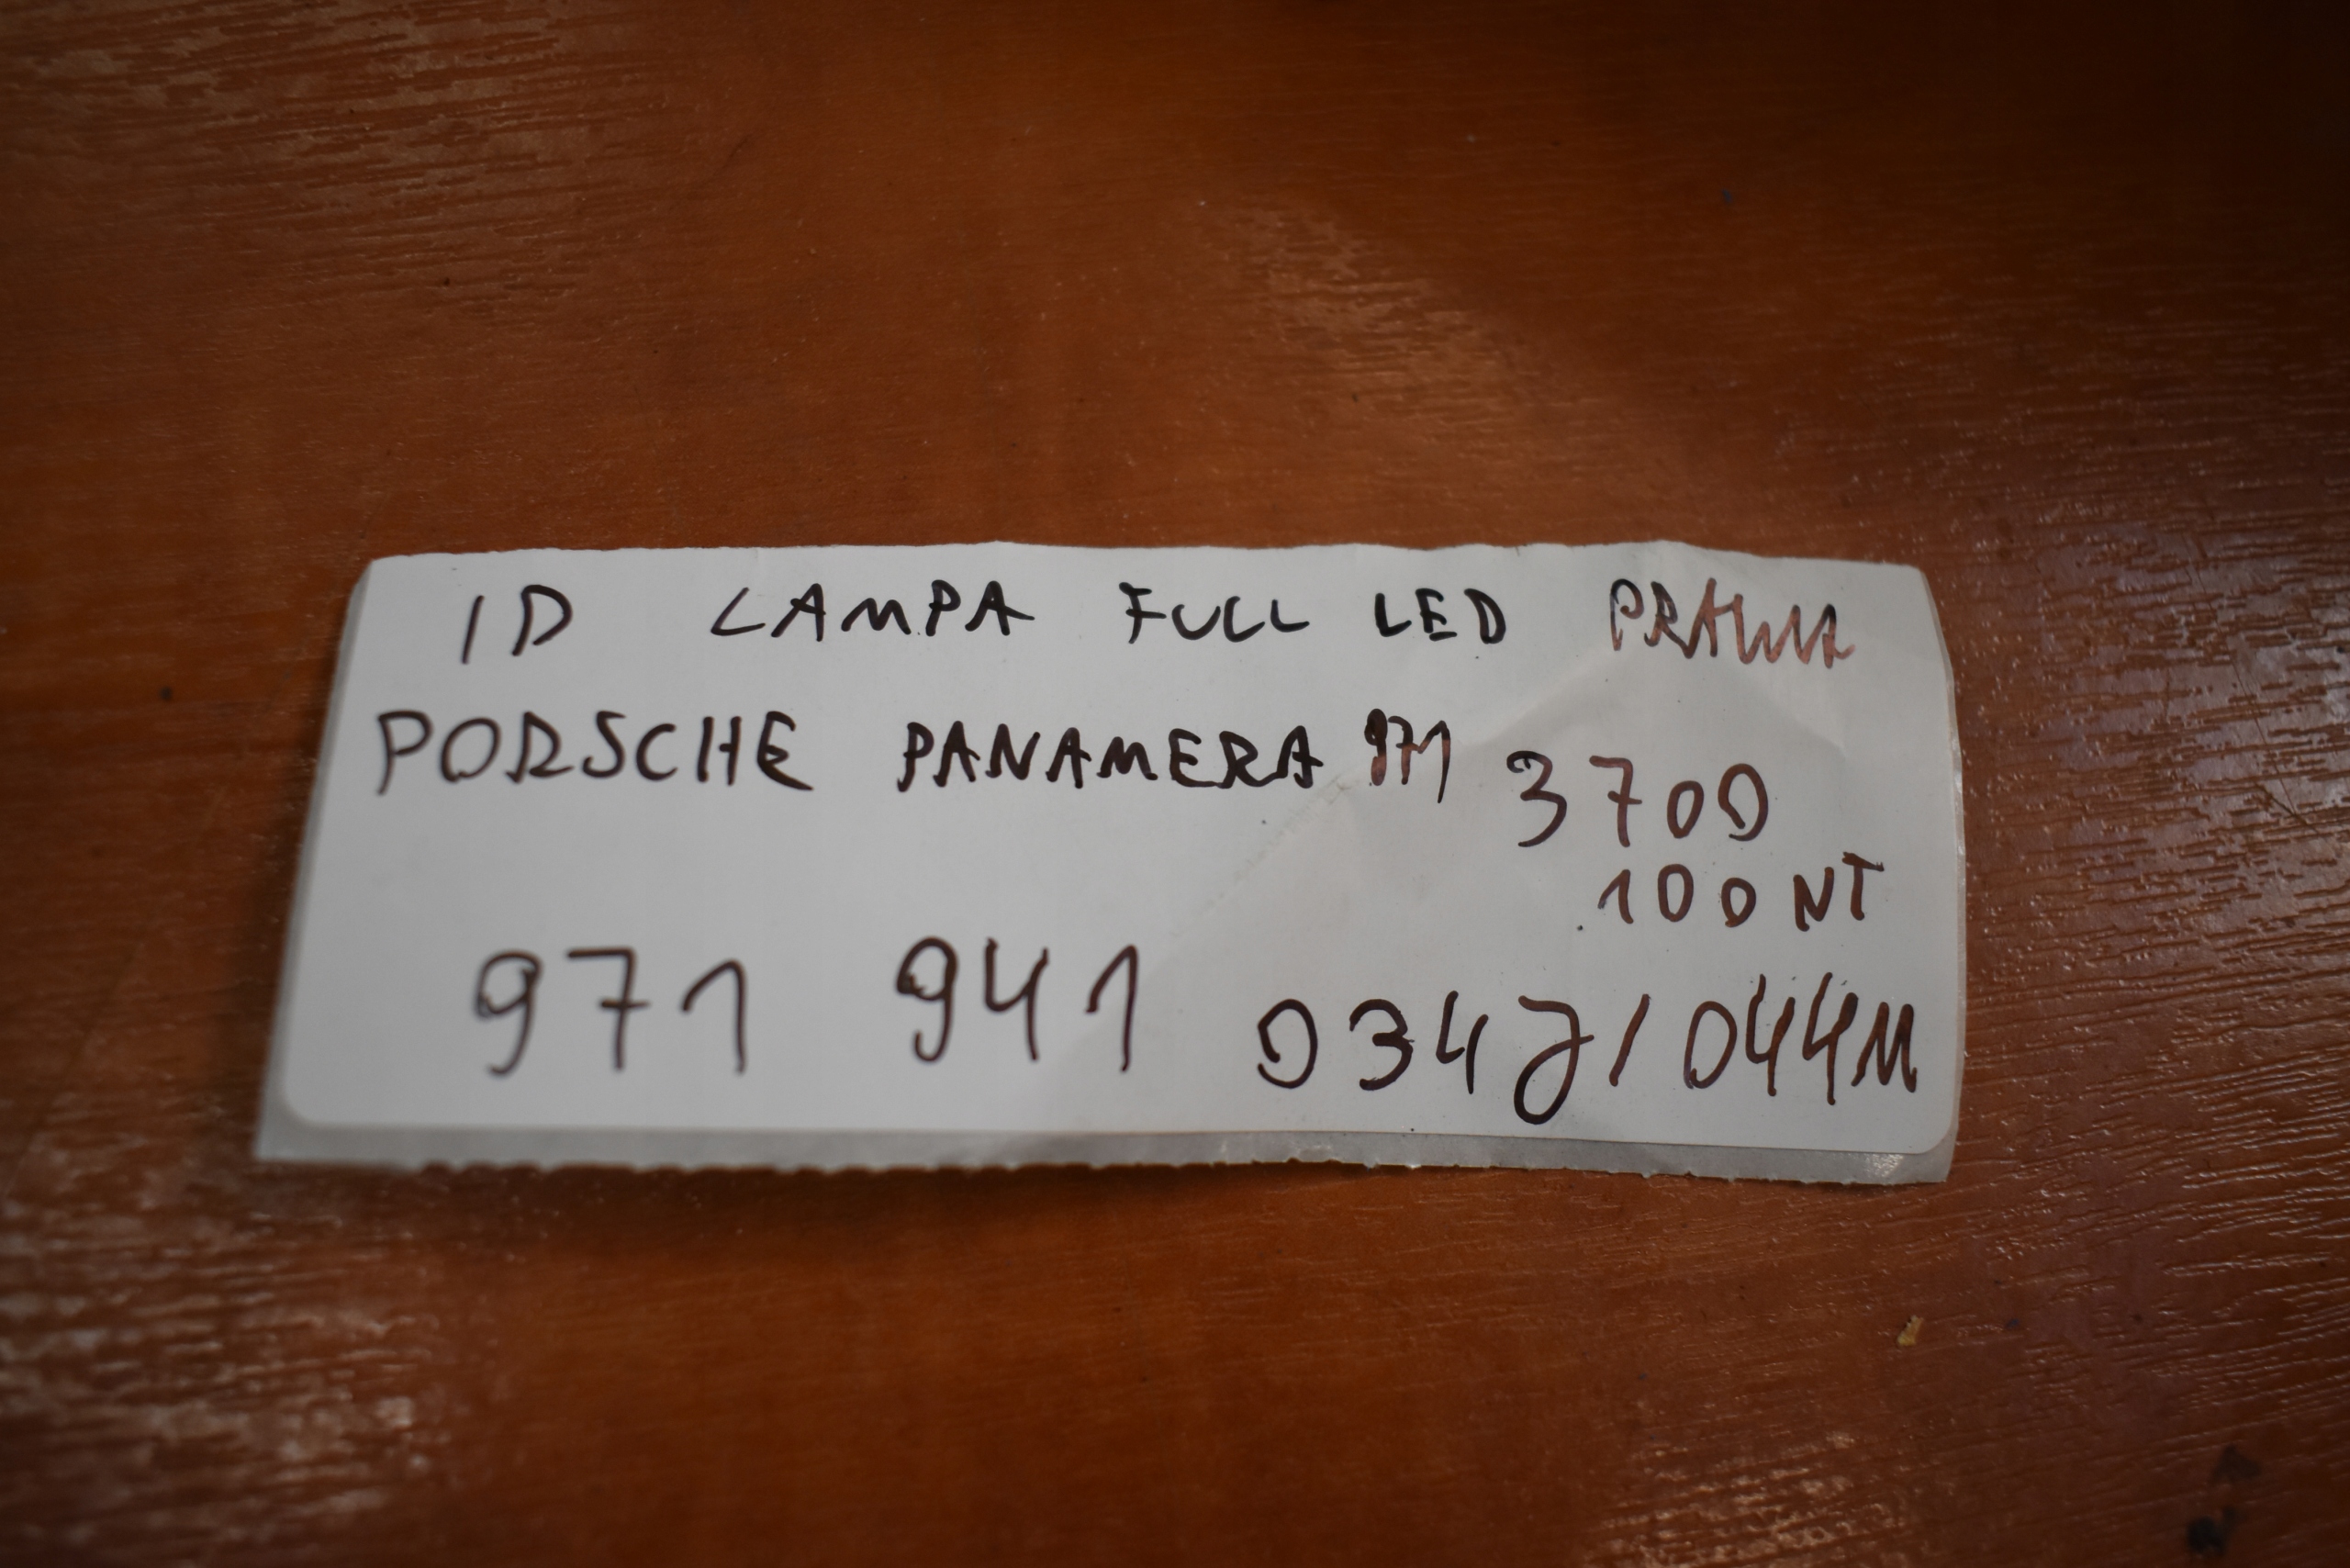 ID LAMPA FULL LED PRAWA
PORSCHE PANAMERA 971
3700
100 NT
971 941 034J/044M